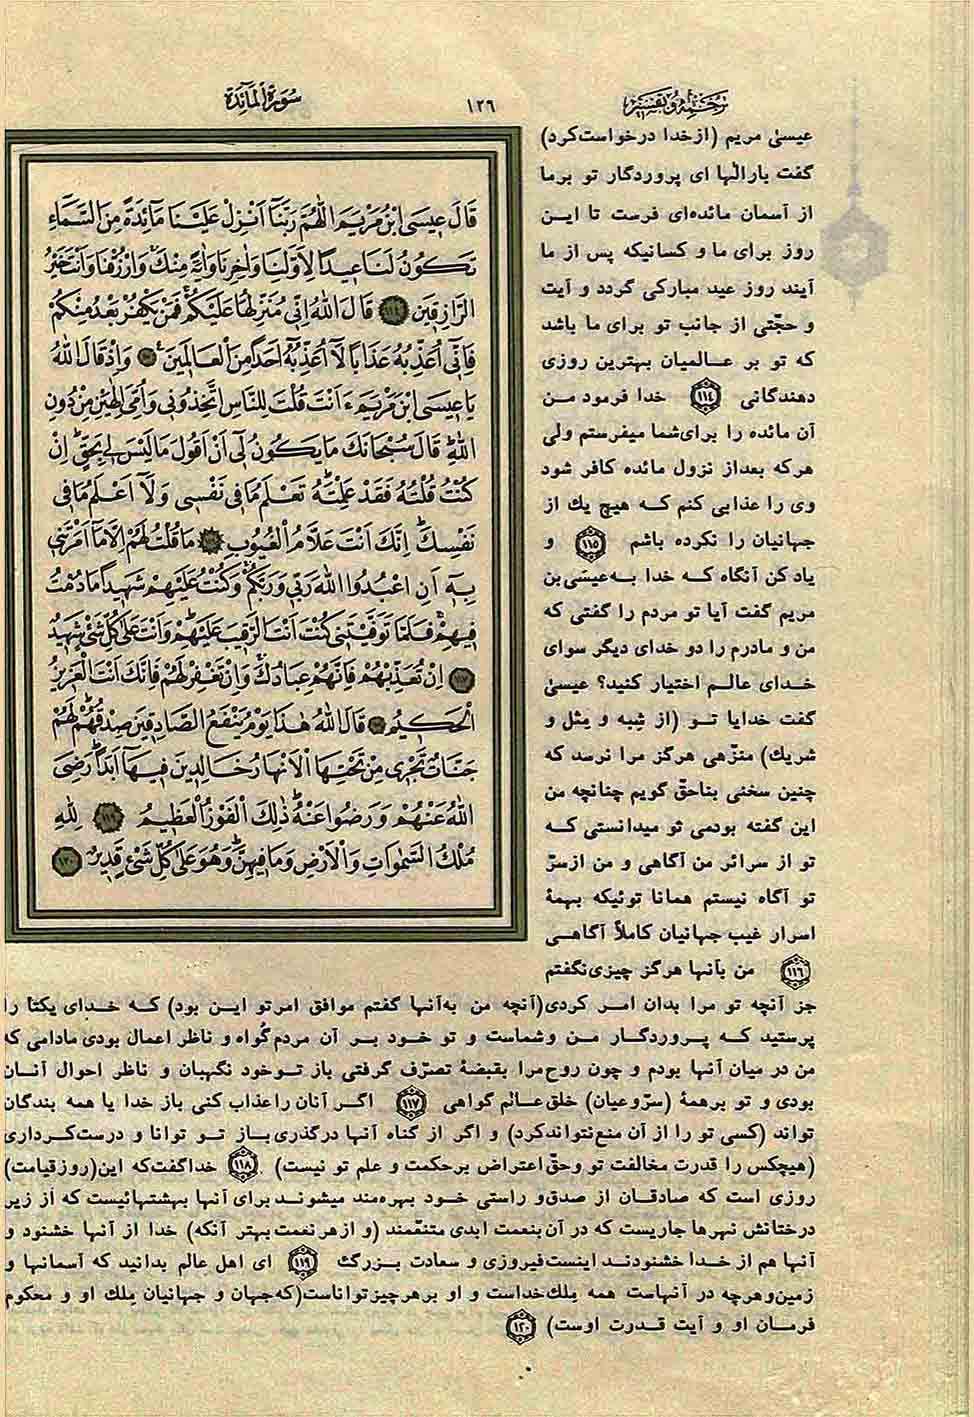 ترجمه و تفسیر
١٢٦
سورة المآئدة
قالَ عيسَى ابْنُ مَرْيَمَ اللّهُمَّ رَبَّنآ اَنْزِلْ عَلَيْنا مآئِدَةً مِنَ السَّمآءِ
تَكُونُ لَنا عيدًا لِاَوَّلِنا وَاخِرِنا وَايَةً مِنْكَ وَارْزُقْنا وَاَنْتَ خَيْرُ
الرّازِقينَ ١١٤ قالَ اللهُ اِنّي مُنَزِّلُها عَلَيْكُمْ فَمَنْ يَكْفُرْ بَعْدُ مِنْكُمْ
فَاِنّي اُعَذِّبُهُ عَذابًا لآ اُعَذِّبُهُ اَحَدًا مِنَ الْعالَمينَ ١١٥ وَاِذْ قالَ اللهُ
يا عيسَى ابْنَ مَرْيَمَ ءَاَنْتَ قُلْتَ لِلنّاسِ اتَّخِذُوني وَاُمِّيَ اِلهَيْنِ مِنْ دُونِ
اللهِ قالَ سُبْحانَكَ ما يَكُونُ لي اَنْ اَقُولَ ما لَيْسَ لي بِحَقٍّ اِنْ
كُنْتُ قُلْتُهُ فَقَدْ عَلِمْتَهُ تَعْلَمُ ما في نَفْسي وَلآ اَعْلَمُ ما في
نَفْسِكَ اِنَّكَ اَنْتَ عَلّامُ الْغُيُوبِ ١١٦ ما قُلْتُ لَهُمْ اِلّا مآ اَمَرْتَني
بِهِ اَنِ اعْبُدُوا اللهَ رَبّي وَرَبَّكُمْ وَكُنْتُ عَلَيْهِمْ شَهيدًا ما دُمْتُ
فيهِمْ فَلَمّا تَوَفَّيْتَني كُنْتَ اَنْتَ الرَّقيبَ عَلَيْهِمْ وَاَنْتَ عَلى كُلِّ شَيْءٍ شَهيدٌ
١١٧ اِنْ تُعَذِّبْهُمْ فَاِنَّهُمْ عِبادُكَ وَاِنْ تَغْفِرْ لَهُمْ فَاِنَّكَ اَنْتَ الْعَزيزُ
الْحَكيمُ ١١٨ قالَ اللهُ هذا يَوْمُ يَنْفَعُ الصّادِقينَ صِدْقُهُمْ لَهُمْ
جَنّاتٌ تَجْري مِنْ تَحْتِهَا الْاَنْهارُ خالِدينَ فيهآ اَبَدًا رَضِيَ
اللهُ عَنْهُمْ وَرَضُوا عَنْهُ ذلِكَ الْفَوْزُ الْعَظيمُ ١١٩ لِلّهِ
مُلْكُ السَّمواتِ وَالْاَرْضِ وَما فيهِنَّ وَهُوَ عَلى كُلِّ شَيْءٍ قَديرٌ ١٢٠
عیسیٰ مریم (ازخدا درخواست‌کرد)
گفت بارالٰها ای پروردگار تو برما
از آسمان مائده‌ای فرست تا این
روز برای ما و کسانیکه پس از ما
آیند روز عید مبارکی گردد و آیت
و حجّتی از جانب تو برای ما باشد
که تو بر عالمیان بهترین روزی
دهندگانی ١١٤ خدا فرمود من
آن مائده را برای‌شما میفرستم ولی
هرکه بعداز نزول مائده کافر شود
وی را عذابی کنم که هیچ یك از
جهانیان را نکرده باشم ١١٥ و
یاد کن آنگاه که خدا به‌عیسَی‌بن
مریم گفت آیا تو مردم را گفتی که
من و مادرم را دو خدای دیگر سوای
خدای عالم اختیار کنید؟ عیسیٰ
گفت خدایا تو (از شِبه و مِثل و
شریك) منزّهی هرگز مرا نرسد که
چنین سخنی بناحقّ گویم چنانچه من
این گفته بودمی تو میدانستی که
تو از سرائر من آگاهی و من ازسرّ
تو آگاه نیستم همانا توئیکه بهمهٔ
اسرار غیب جهانیان کاملاً آگاهی
١١٦ من بآنها هرگز چیزی‌نگفتم
جز آنچه تو مرا بدان امر کردی(آنچه من به‌آنها گفتم موافق امرتو این بود) که خدای یکتا را
پرستید که پروردگار من وشماست و تو خود بر آن مردم‌گواه و ناظر اعمال بودی مادامی که
من در میان آنها بودم و چون روح‌مرا بقبضهٔ تصرّف گرفتی باز توخود نگهبان و ناظر احوال آنان
بودی و تو برهمهٔ (سرّوعیان) خلق‌عالم گواهی ١١٧ اگر آنان راعذاب کنی باز خدا یا همه بندگان
تواند (کسی تو را از آن منع‌نتواندکرد) و اگر از گناه آنها درگذری‌باز تو توانا و درست‌کرداری
(هیچکس را قدرت مخالفت تو وحقّ‌اعتراض برحکمت و علم تو نیست) ١١٨ خداگفت‌که این(روزقیامت)
روزی است که صادقان از صدق‌و راستی خود بهره‌مند میشوندبرای آنها بهشتهائیست که از زیر
درختانش نهرها جاریست که در آن‌بنعمت ابدی متنعّمند (و ازهرنعمت‌بهتر آنکه) خدا از آنها خشنود و
آنها هم از خدا خشنودند اینست‌فیروزی و سعادت بزرگ ١١٩ ای اهل عالم بدانید که آسمانها و
زمین‌وهرچه در آنهاست همه مِلك‌خداست و او برهرچیزتواناست(که‌جهان و جهانیان مِلك او و محکوم
فرمان او و آیت قدرت اوست) ١٢٠